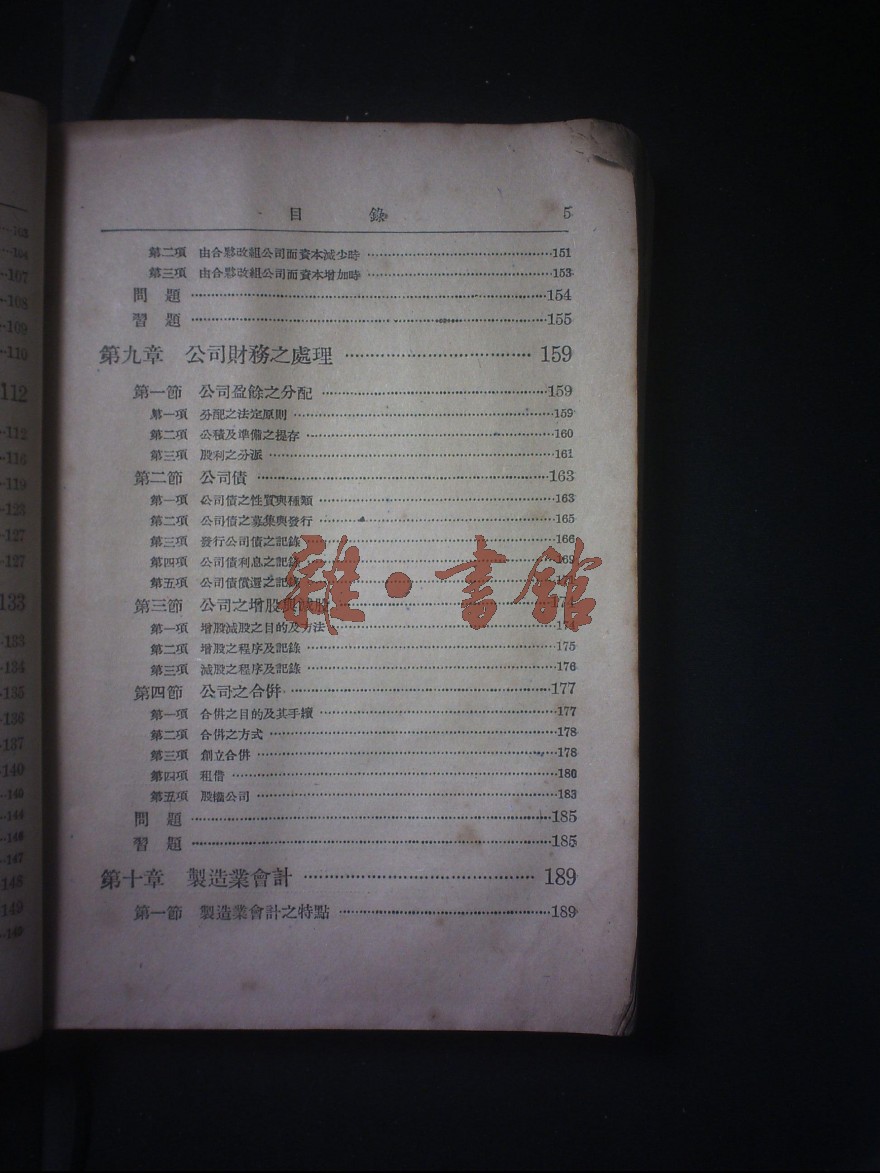 目 錄 5
第二項 由合夥改組公司而資本減少時 151
第三項 由合夥改組公司而資本增加時 153
問 題 154
習 題 155
第九章 公司財務之處理 159
第一節 公司盈餘之分配 159
第一項 分配之法定原則 159
第二項 公積及準備之提存 160
第三項 股利之分派 161
第二節 公司債 163
第一項 公司債之性質與種類 163
第二項 公司債之募集與發行 165
第三項 發行公司債之記錄 166
第四項 公司債利息之記錄 169
第五項 公司債償還之記錄
第三節 公司之增股與減股 174
第一項 增股減股之目的及方法 174
第二項 增股之程序及記錄 175
第三項 減股之程序及記錄 176
第四節 公司之合併 177
第一項 合併之目的及其手續 177
第二項 合併之方式 178
第三項 創立合併 178
第四項 租借 180
第五項 股權公司 183
問 題 185
習 題 185
第十章 製造業會計 189
第一節 製造業會計之特點 189
雜·書館
107
108
109
110
112
112
116
119
123
127
127
133
133
134
135
136
137
140
144
147
148
149